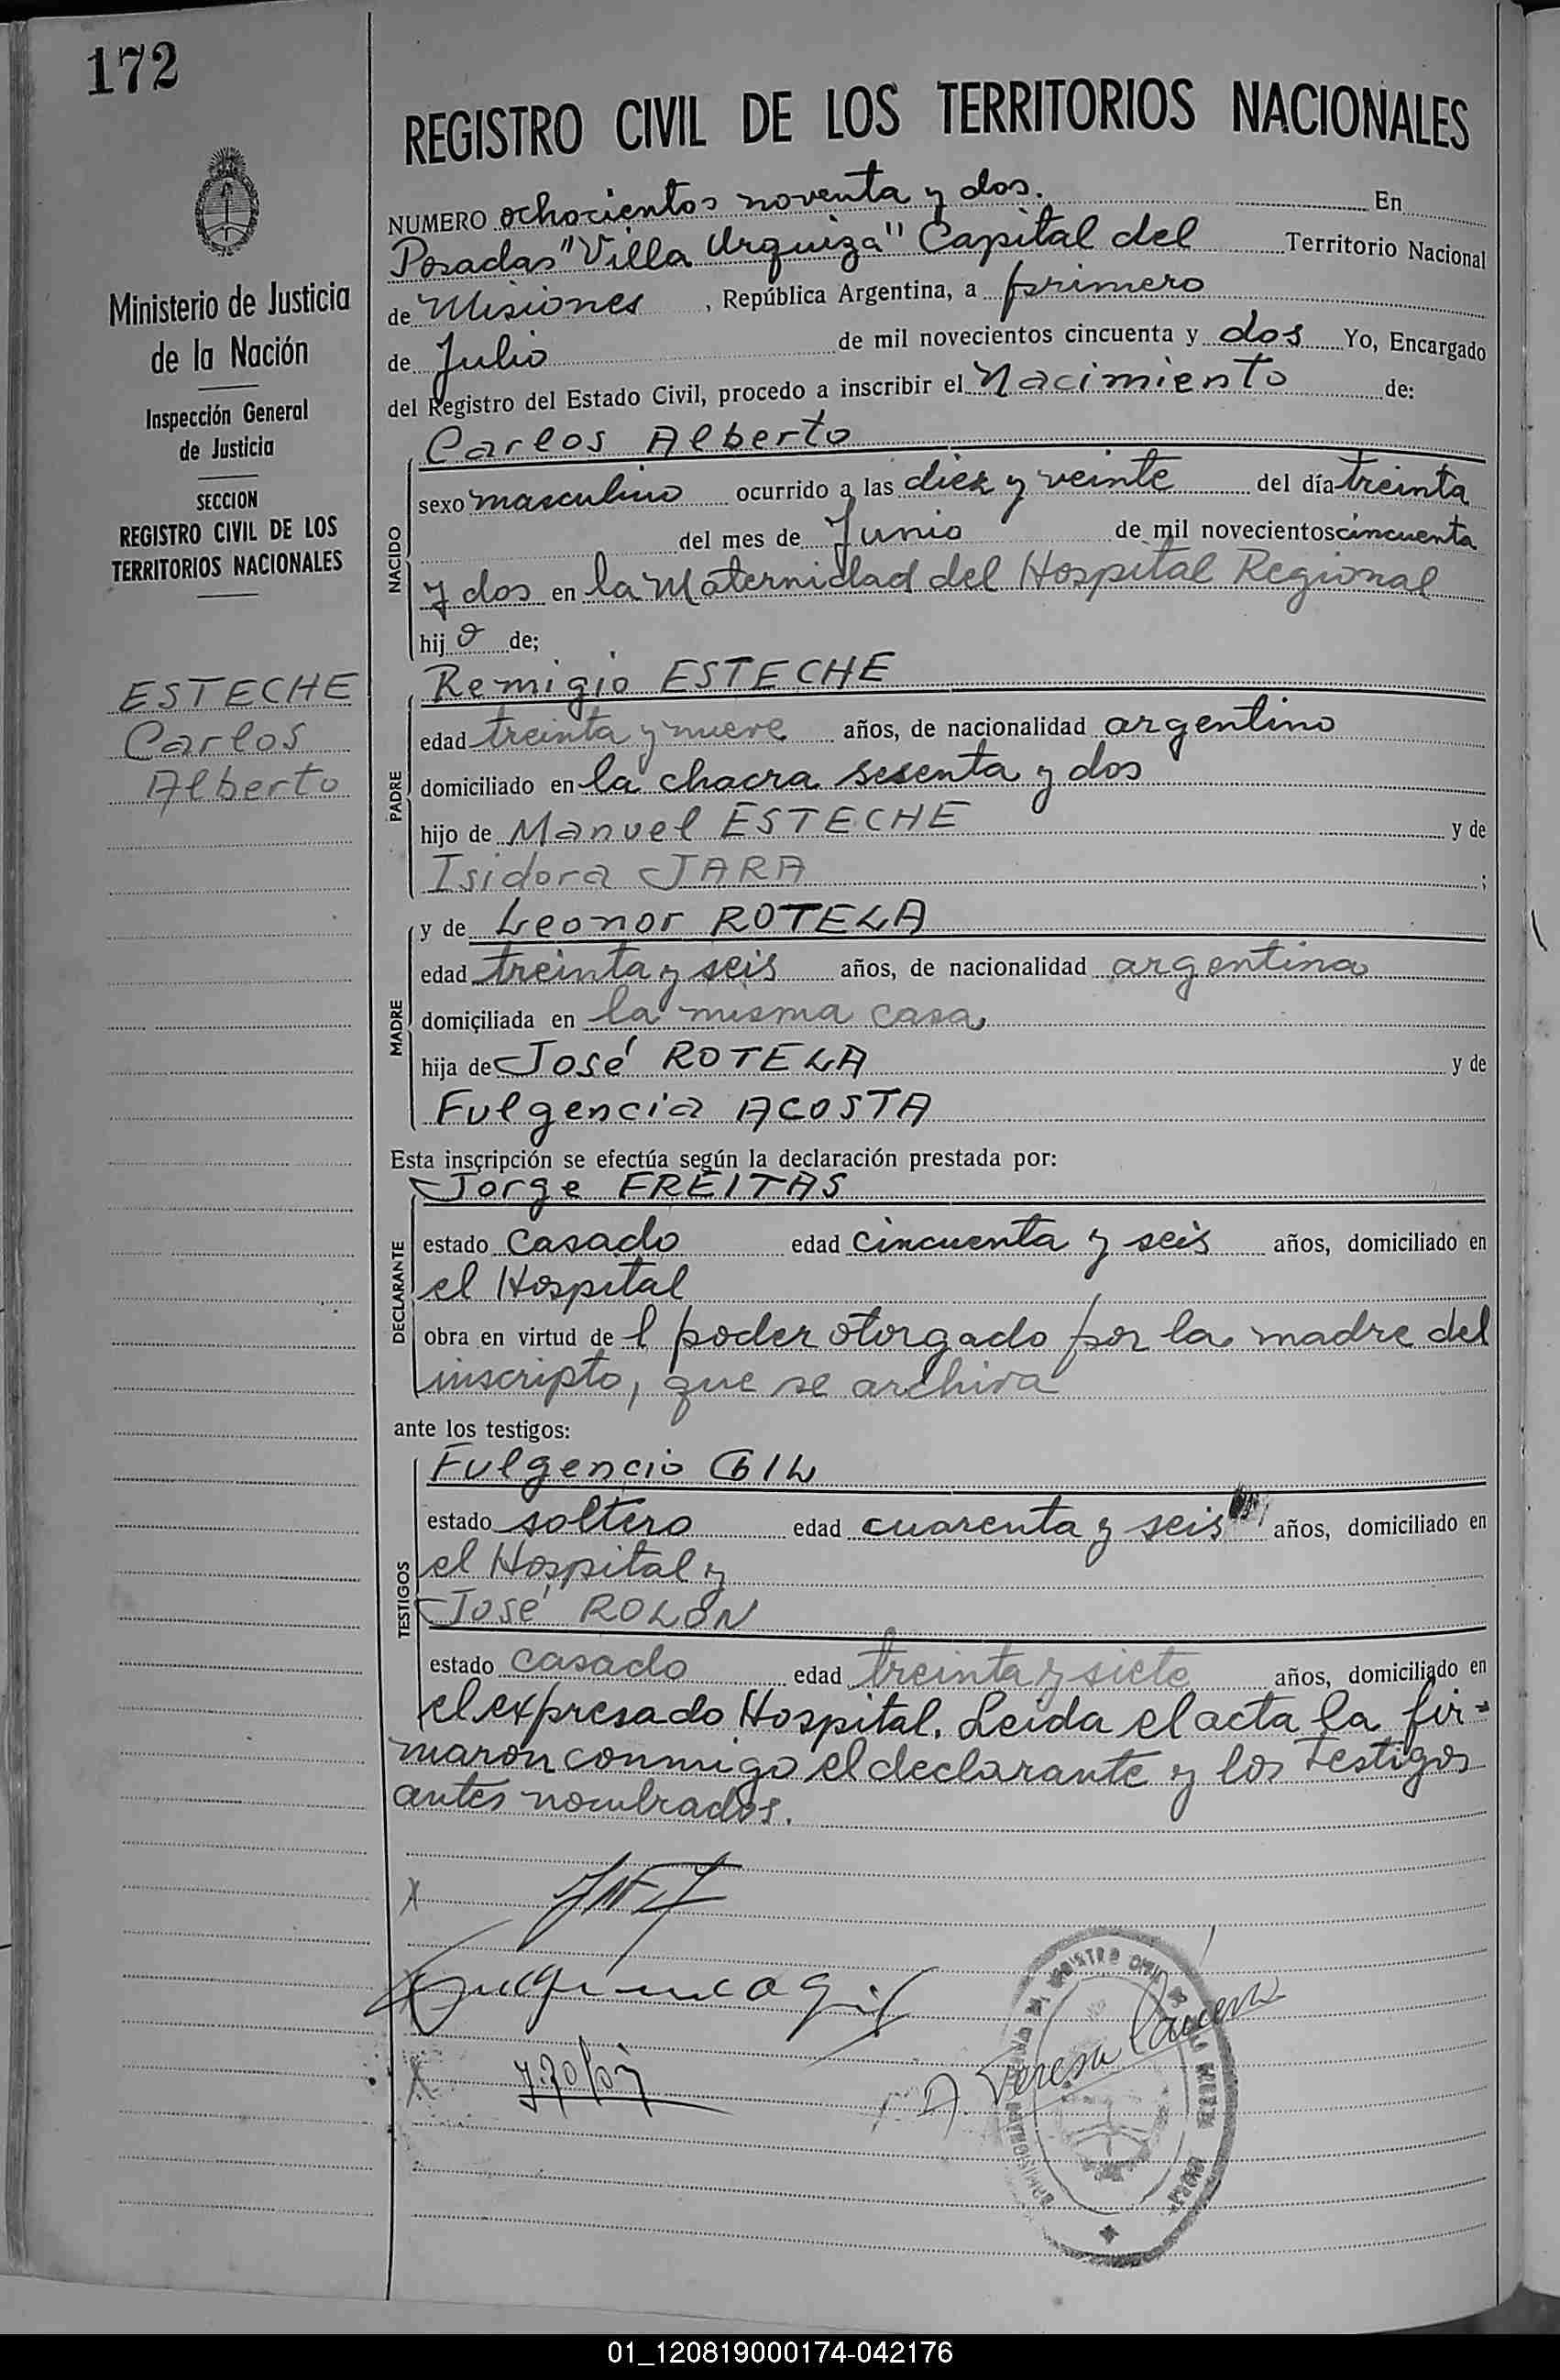 172
Ministerio de Justicia
de la Nación
Inspección General
de Justicia
SECCION
REGISTRO CIVIL DE LOS
TERRITORIOS NACIONALES
ESTECHE
Carlos
Alberto
REGISTRO CIVIL DE LOS TERRITORIOS NACIONALES
NUMERO ochocientos noventa y dos. En
Posadas "Villa Urquiza" Capital del Territorio Nacional
de Misiones, República Argentina, a primero
de Julio de mil novecientos cincuenta y dos Yo, Encargado
del Registro del Estado Civil, procedo a inscribir el Nacimiento de:
NACIDO
Carlos Alberto
sexo masculino ocurrido a las diez y veinte del día treinta
del mes de Junio de mil novecientos cincuenta
y dos en la Maternidad del Hospital Regional
hijo de;
PADRE
Remigio ESTECHE
edad treinta y nueve años, de nacionalidad argentino
domiciliado en la chacra sesenta y dos
hijo de Manuel ESTECHE y de
Isidora JARA ;
MADRE
y de Leonor ROTELA
edad treinta y seis años, de nacionalidad argentina
domiciliada en la misma casa
hija de José ROTELA y de
Fulgencia ACOSTA
Esta inscripción se efectúa según la declaración prestada por:
DECLARANTE
Jorge FREITAS
estado casado edad cincuenta y seis años, domiciliado en
el Hospital
obra en virtud del poder otorgado por la madre del
inscripto, que se archiva
ante los testigos:
TESTIGOS
Fulgencio GIL
estado soltero edad cuarenta y seis años, domiciliado en
el Hospital y
José ROLON
estado casado edad treinta y siete años, domiciliado en
el expresado Hospital. Leida el acta la fir=
maron conmigo el declarante y los testigos
antes nombrados.
x
x
01_120819000174-042176